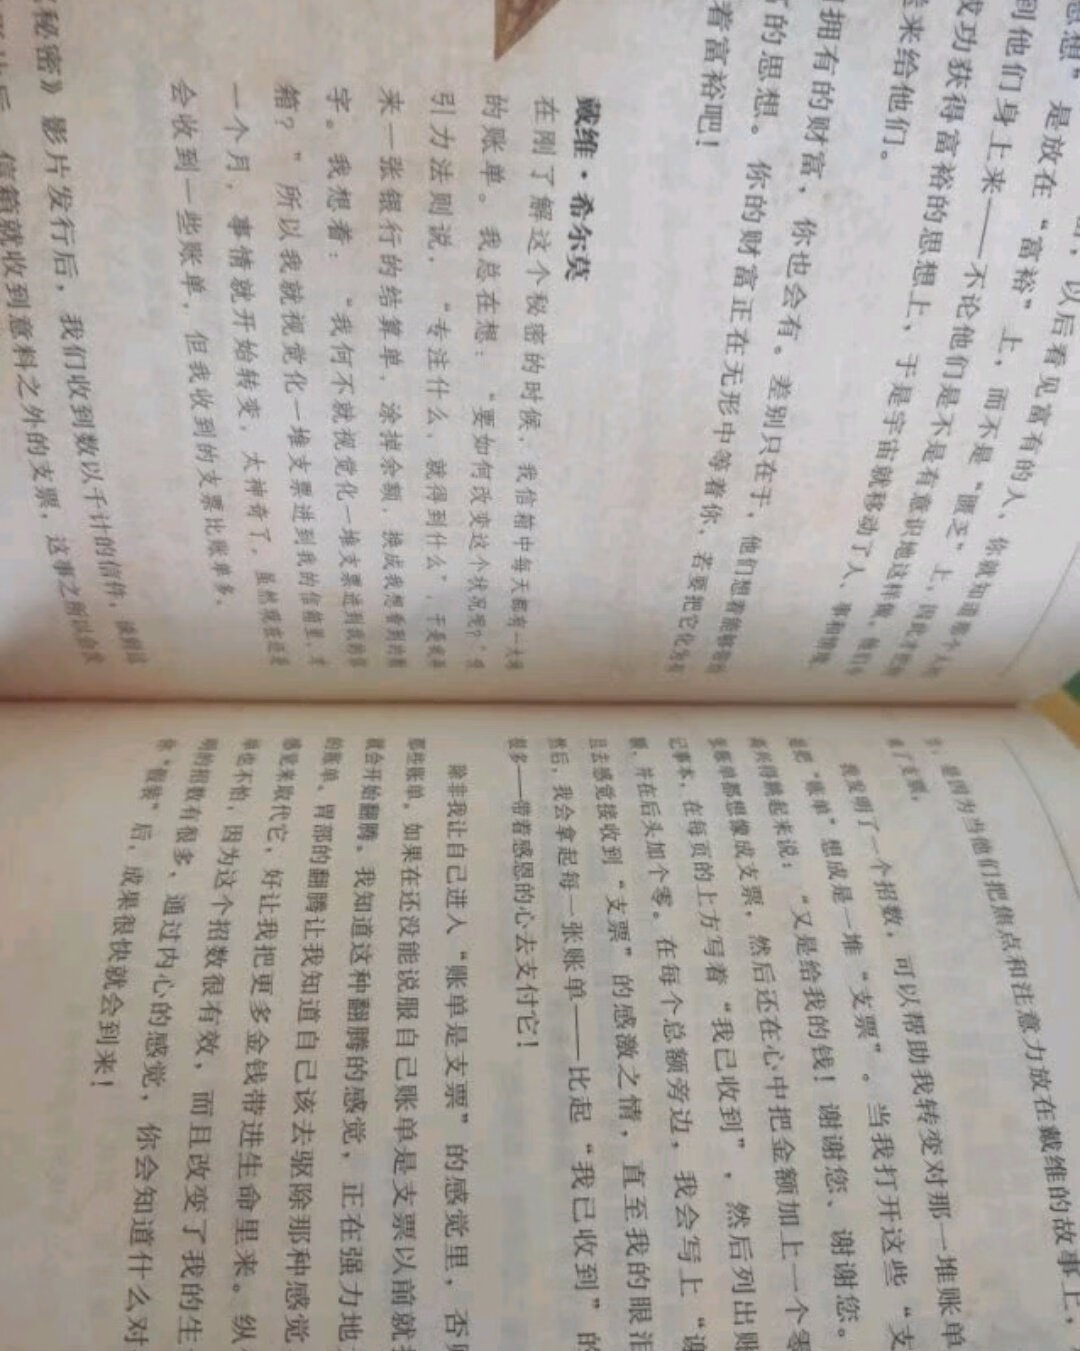 思想”是放在“富裕”上，而不是“匮乏”上，因此才
到他们身上来——不论他们是不是有意识地这样做，他们
成功获得富裕的思想上，于是宇宙就移动了人、事和情境
来给他们。
拥有的财富，你也会有。差别只在于，他们想着能够带给
的思想。你的财富正在无形中等着你，若要把它化为有
着富裕吧！
戴维·希尔莫
在刚了解这个秘密的时候，我信箱中每天都有一大堆
的账单。我总在想：“要如何改变这个状况呢？”吸
引力法则说，“专注什么，就得到什么”，于是我弄
来一张银行的结算单，涂掉余额，换成我想看到的数
字。我想着：“我何不就视觉化一堆支票进到我的信
箱？”所以我就视觉化一堆支票进到我的信箱里，才
一个月，事情就开始转变，太神奇了。虽然现在还是
会收到一些账单，但我收到的支票比账单多。
秘密》影片发行后，我们收到数以千计的信件，谈到
后，信箱就收到意料之外的支票，这事之所以会发
是因为当他们把焦点和注意力放在戴维的故事上，
了支票。
我发明了一个招数，可以帮助我转变对那一堆账单
把“账单”想成是一堆“支票”。当我打开这些“支
高兴得跳起来说：“又是给我的钱！谢谢您、谢谢您。
张账单都想像成支票，然后还在心中把金额加上一个零
记事本，在每页的上方写着“我已收到”，然后列出账
额，并在后头加个零。在每个总额旁边，我会写上“谢
且去感觉接收到“支票”的感激之情，直至我的眼泪
然后，我会拿起每一张账单——比起“我已收到”的
很多——带着感恩的心去支付它！
除非我让自己进入“账单是支票”的感觉里，否则
那些账单。如果在还没能说服自己账单是支票以前就
就会开始翻腾。我知道这种翻腾的感觉，正在强力地
的账单。胃部的翻腾让我知道自己该去驱除那种感觉
感觉来取代它，好让我把更多金钱带进生命里来。纵
单也不怕，因为这个招数很有效，而且改变了我的生
明的招数有很多，通过内心的感觉，你会知道什么对
你“假装”后，成果很快就会到来！